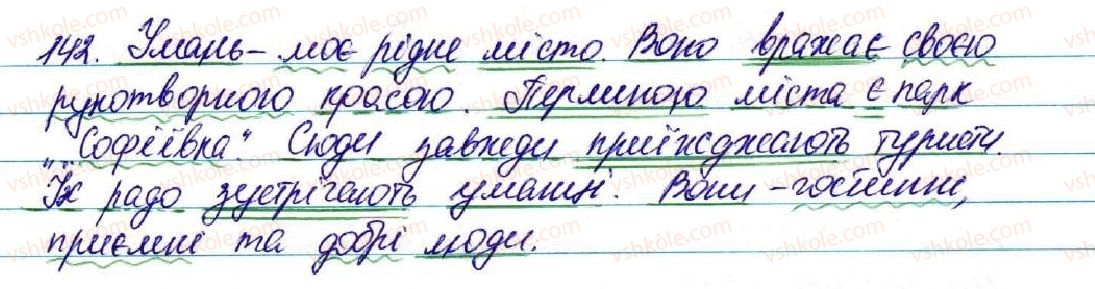 142. Умань – моє рідне місто. Воно вражає своєю
рукотворною красою. Перлиною міста є парк
„Софіївка". Сюди завжди приїжджають туристи.
Їх радо зустрічають уманці. Вони – гостинні,
приємні та добрі люди.